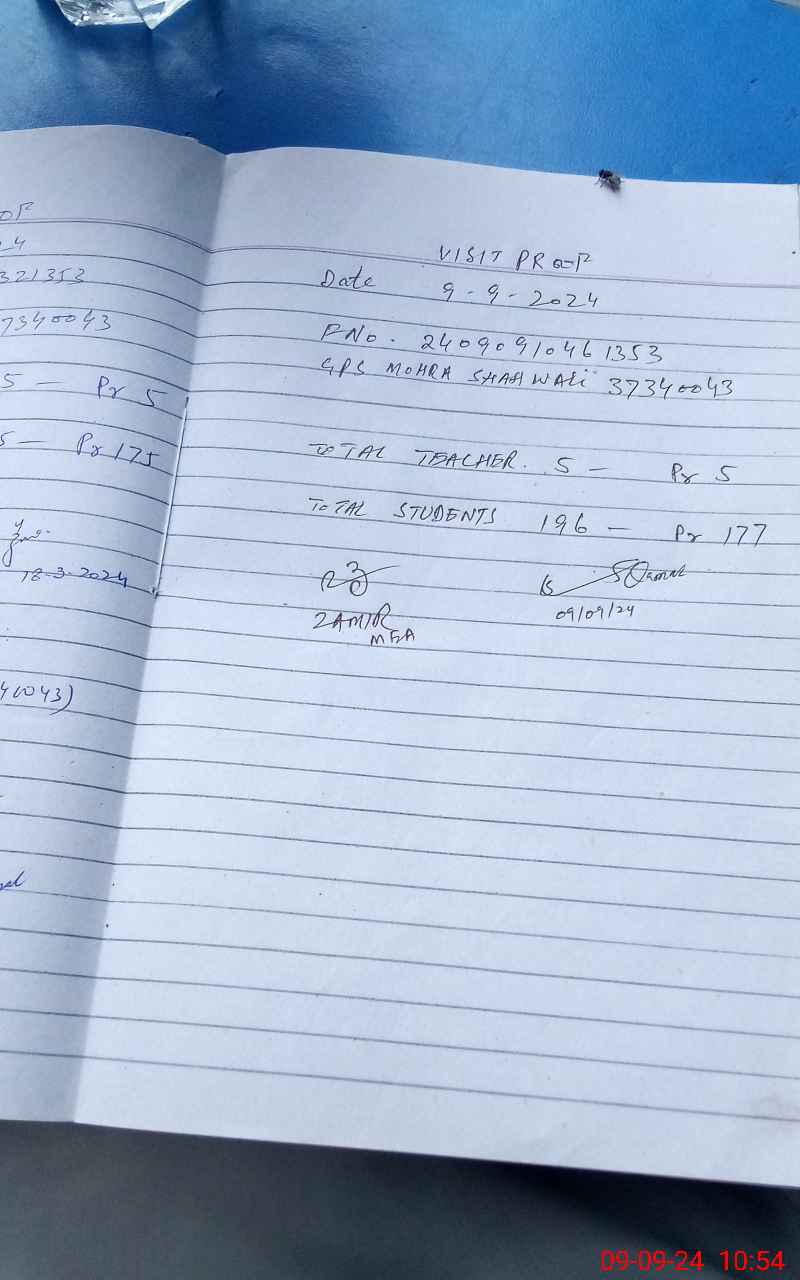 OF
321353
7340043
5 — Pr 5
5 — Pr 175
18-3-2024
40043)
VISIT PROOF
Date 9-9-2024
FNo. 24090910461353
GPS MOHRA SHAH WALI 37340043
TOTAL TEACHER. 5 — Pr 5
TOTAL STUDENTS 196 — Pr 177
ZAMIR
MEA
09/09/24
09-09-24 10:54